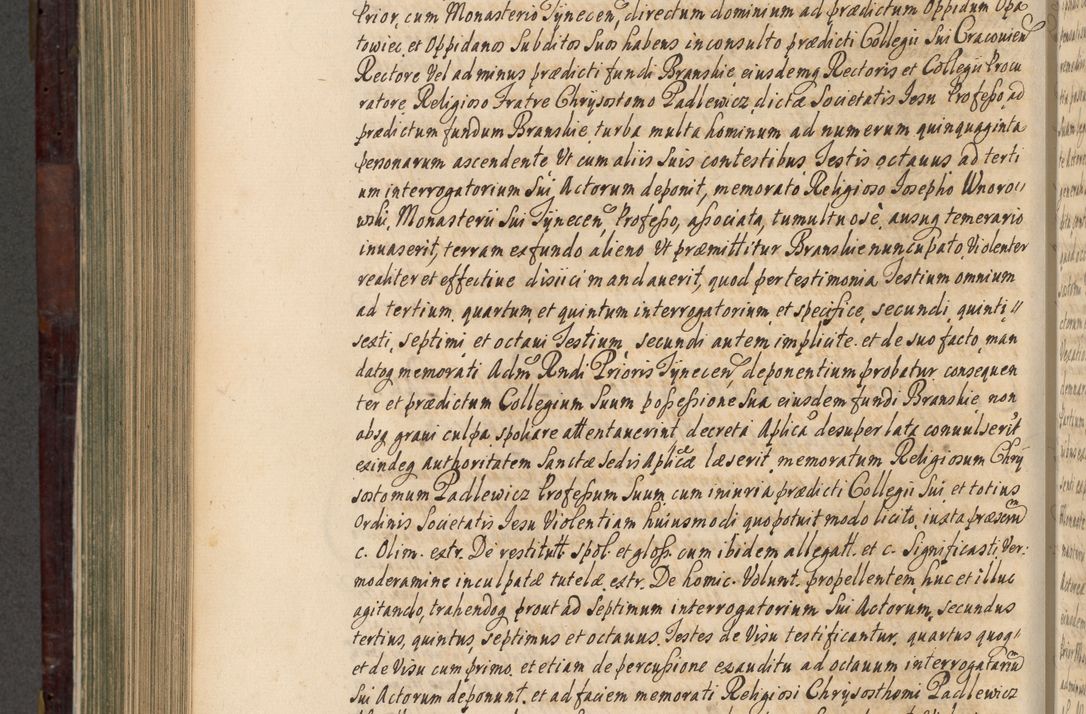 Prior, cum Monasterio Tynecen, directum dominium ad prædictum Oppidum Opa
towiec, et Oppidanos Subditos Suos habens inconsulto prædicti Collegii Sui Cracovien
Rectore Vel ad minus prædicti fundi Branskie eiusdemq Rectoris et Collegii Procu
ratore Religioso Fratre Chrysostomo Padlewicz dictæ Societatis Iesu Professo, ad
prædictum fundum Branskie, turba multa hominum ad numerum quinquaginta
personarum ascendente Ut cum aliis Suis contestibus Testis octauus ad terti
um interrogatorium Sui Actorum deponit, memorato Religioso Iosepho Wnoro//
wski, Monasterii Sui Tynecen Professo, associata, tumultuose ausuq temerario
inuaserit, terram ex fundo alieno Ut præmittitur Branskie nuncupato, Violenter
realiter et effectiue disiici mandauerit, quod per testimonia Testium omnium
ad tertium, quartum et quintum interrogatorium et specifice, secundi, quinti //
sexti, septimi et octaui Testium, secundi autem implicite et de suo facto, man
datoq memorati Adm Rndi Prioris Tynecen, deponentium probatur consequen
ter et prædictum Collegium Suum possessione Sua eiusdem fundi Branskie, non
absq graui culpa spoliare attentauerint decreta Aplica desuper lata conuulserit
exindeq Authoritatem Sanctæ Sedis Aplicæ læserit, memoratum Religiosum Chry
sostomum Padlewicz Professum Suum cum iniuria prædicti Collegii Sui et totius
Ordinis Societatis Iesu Violentiam huiusmodi quo potuit modo licito, iuxta præsenti
c. Olim. extr. De restitutt spol. et gloss. cum ibidem allegatt. et c. Significasti. Ver:
moderamine inculpatæ tutelæ. extr. De homic. Volunt. propellentem, huc et illuc
agitando, trahendoq, prout ad Septimum interrogatorium Sui Actorum, secundus
tertius, quintus, septimus et octauus Testes de Visu testificantur, quartus quoq//
et de Visu cum primo, et etiam de percussione exauditu ad octauum interrogatorium
Sui Actorum deponunt, et ad faciem memorati Religiosi Chrysosthomi Padlewicz